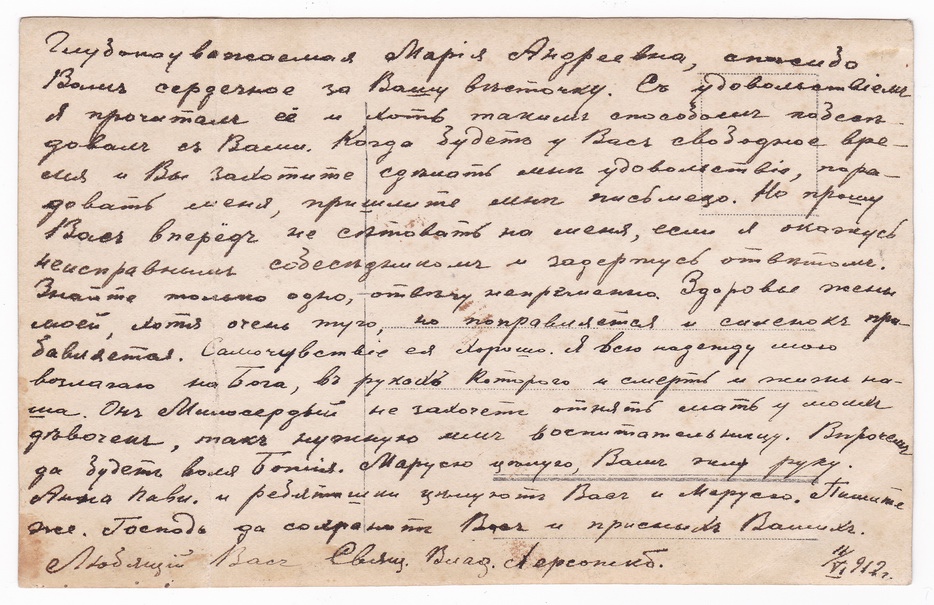 Глубокоуважаемая Марія Андреевна, спасибо
Вамъ сердечное за Вашу вѣсточку. Съ удовольствіемъ
я прочиталъ её и хоть такимъ способомъ побесѣ-
довалъ съ Вами. Когда будетъ у Васъ свободное вре-
мя и Вы захотите сдѣлать мнѣ удовольствіе, пора-
довать меня, пришлите мнѣ письмецо. Но прошу
Васъ впередъ не сѣтовать на меня, если я окажусь
неисправнымъ собесѣдникомъ и задержусь отвѣтомъ.
Знайте только одно, отвѣчу непременно. Здоровье жены
моей, хотя очень туго, но поправляется и силенокъ при-
бавляется. Самочувствіе ея хорошо. Я всю надежду мою
возлагаю на Бога, въ рукахъ Которого и смерть и жизнь на-
ша. Онъ Милосердый не захочетъ отнять мать у моихъ
дѣвочекъ, такъ нужную имъ воспитательницу. Впрочемъ
да будетъ воля Божія. Марусю цѣлую, Вамъ жму руку.
Анна Павл. и ребятишки цѣлуютъ Васъ и Марусю. Пишите
же. Господь да сохранитъ Васъ и присныхъ Вашихъ.
Любящій Васъ Свящ. Влад.
VI 912 г.